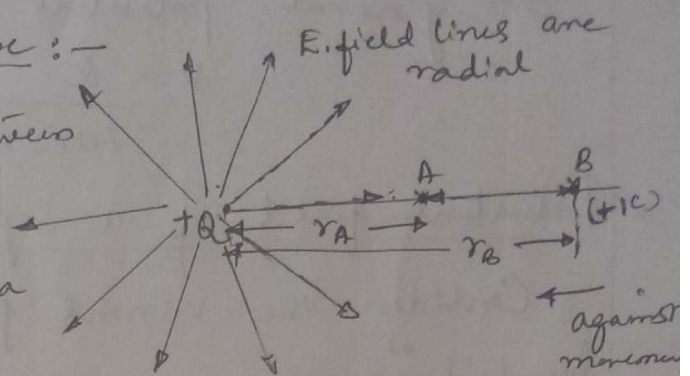 :-
E.field lines are
radial
A
B
(+1C)
+Q
rA
rB
a
against